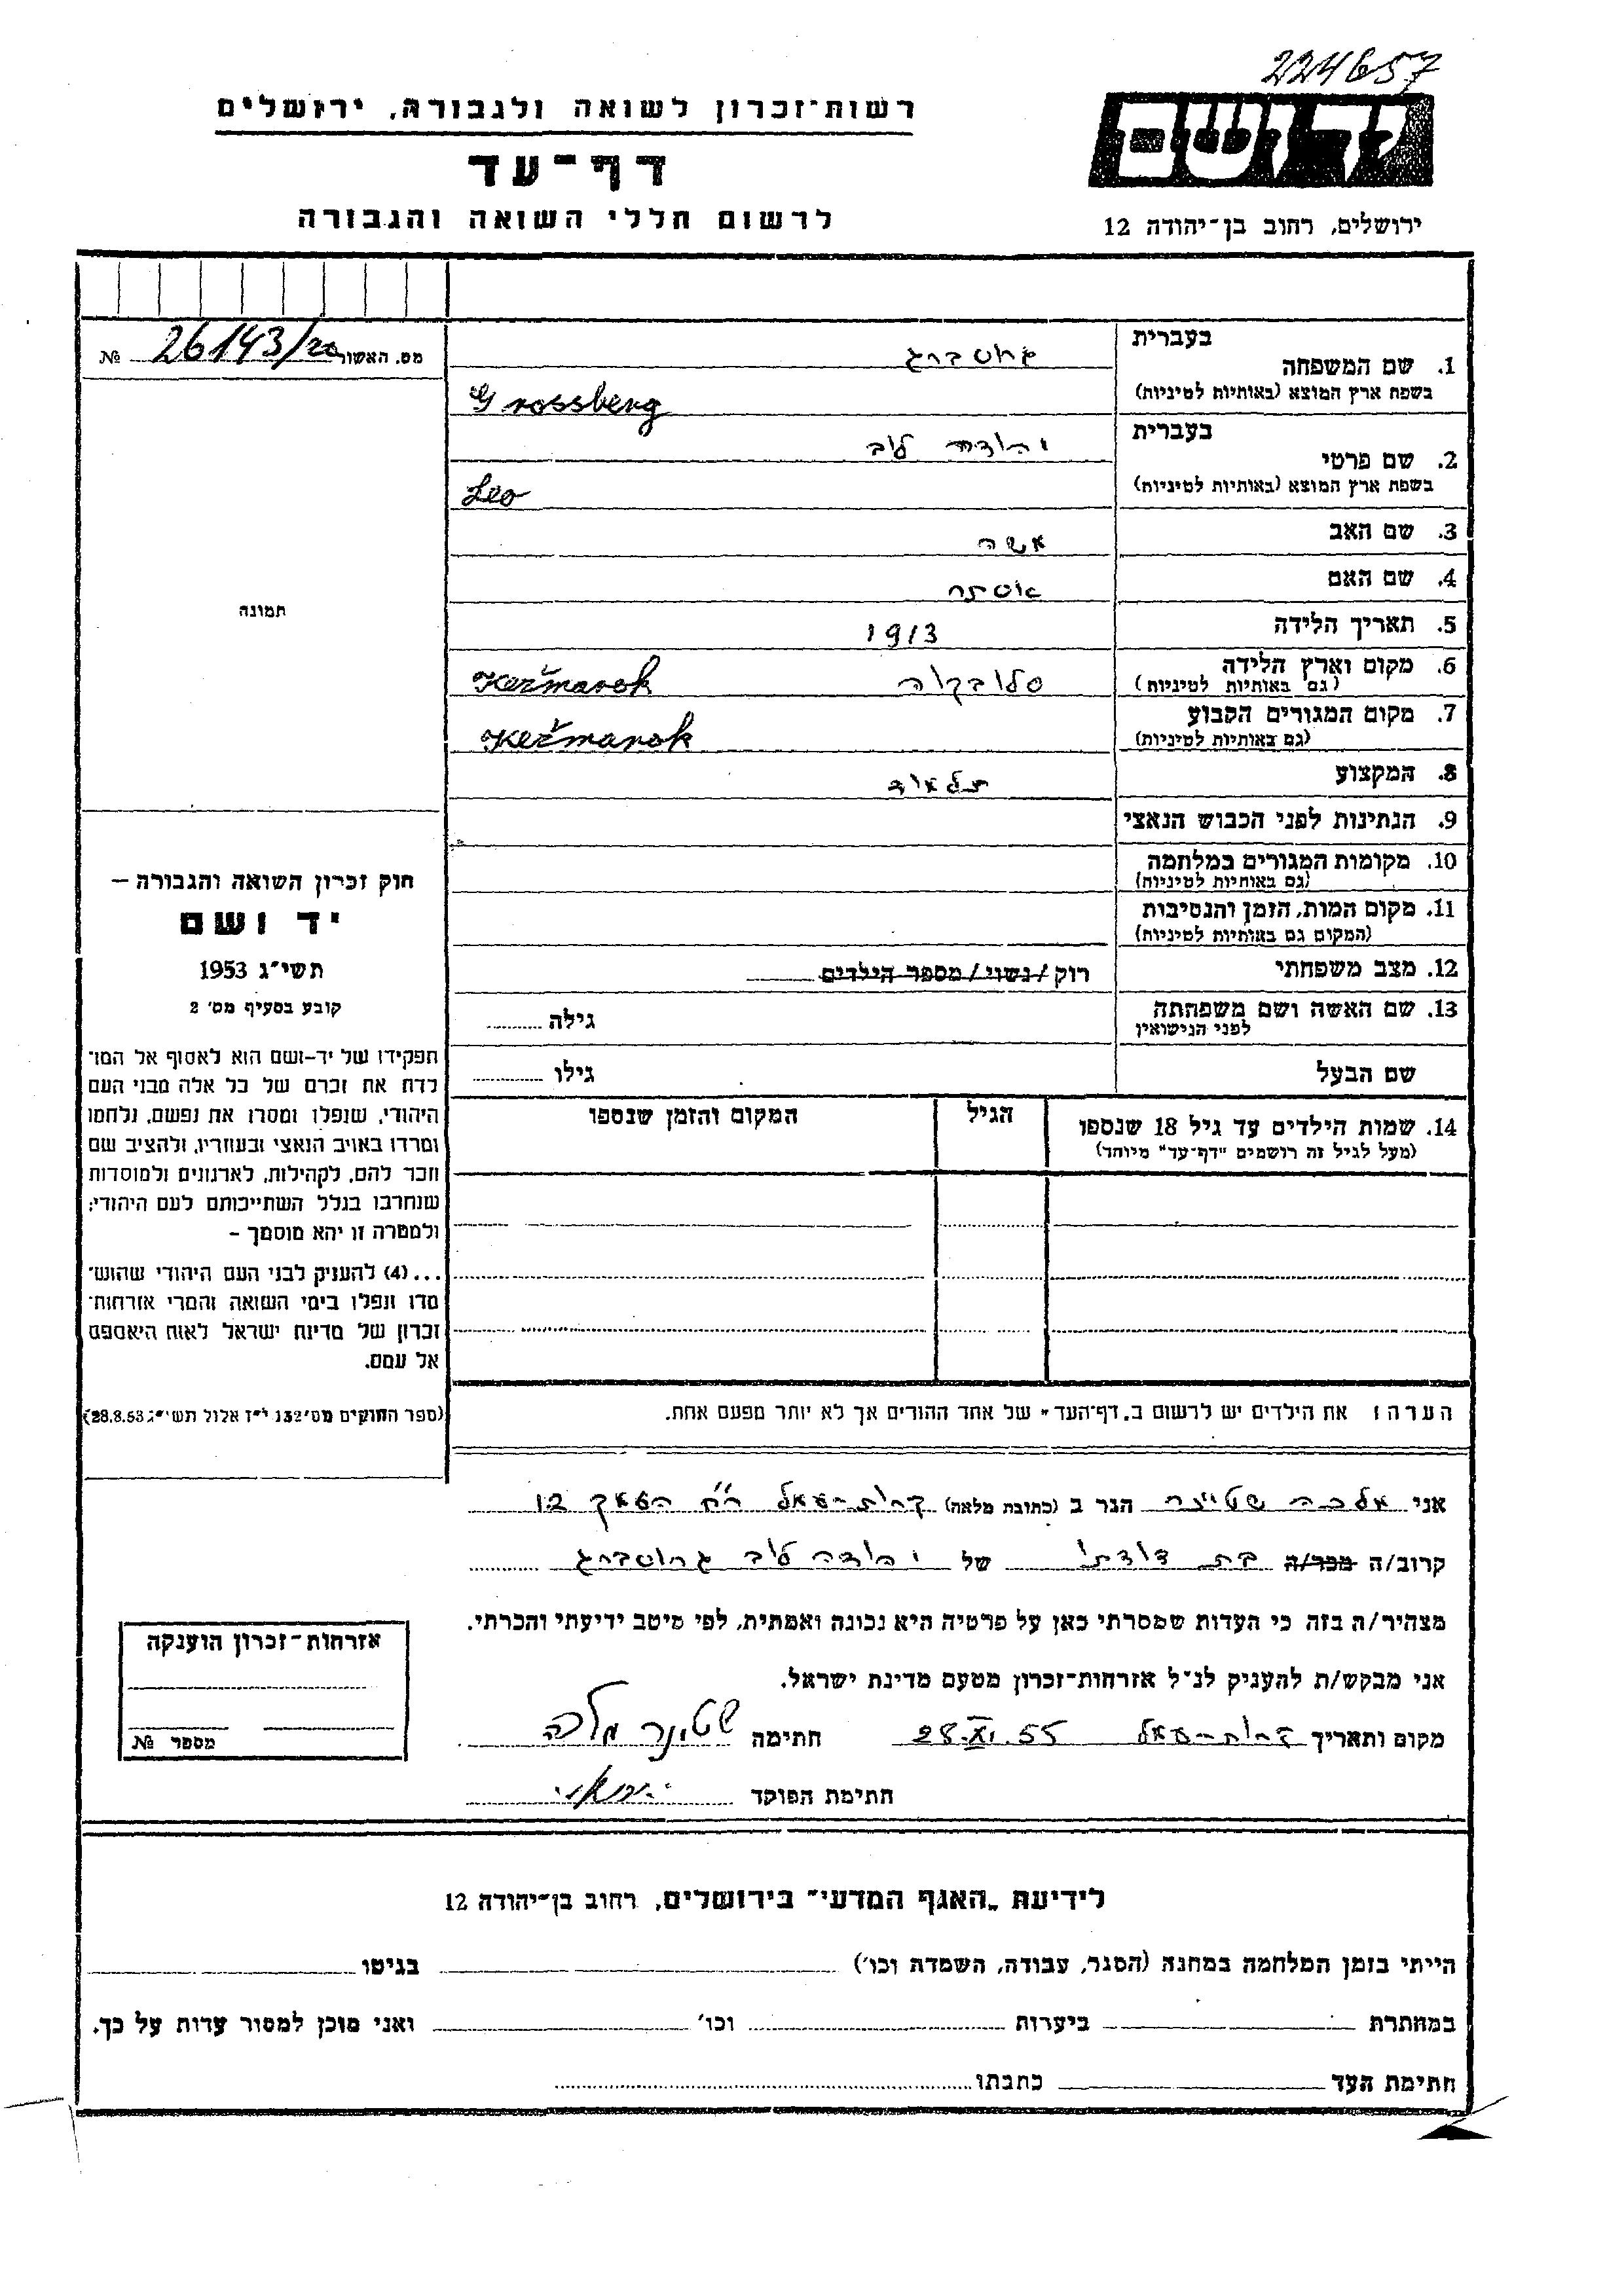 224657
יד ושם
רשות-זכרון לשואה ולגבורה, ירושלים
דף-עד
לרשום חללי השואה והגבורה
ירושלים, רחוב בן-יהודה 12
מס. האשור 26143/20 №
בעברית
1. שם המשפחה גרוסברג
בשפת ארץ המוצא (באותיות לטיניות) Grossberg
בעברית
2. שם פרטי יהודה לוב
בשפת ארץ המוצא (באותיות לטיניות) Leo
3. שם האב אשר
4. שם האם אסתר
5. תאריך הלידה 1913
6. מקום וארץ הלידה סלובקיה Kežmarok
(גם באותיות לטיניות)
7. מקום המגורים הקבוע Kežmarok
(גם באותיות לטיניות)
8. המקצוע
9. הנתינות לפני הכבוש הנאצי
10. מקומות המגורים במלחמה
(גם באותיות לטיניות)
11. מקום המות, הזמן והנסיבות
(המקום גם באותיות לטיניות)
12. מצב משפחתי רוק / נשוי / מספר הילדים
13. שם האשה ושם משפחתה גילה
לפני הנישואין
שם הבעל גילו
14. שמות הילדים עד גיל 18 שנספו הגיל המקום והזמן שנספו
(מעל לגיל זה רושמים "דף-עד" מיוחד)
הערה: את הילדים יש לרשום ב„דף-העד" של אחד ההורים אך לא יותר מפעם אחת.
תמונה
חוק זכרון השואה והגבורה –
יד ושם
תשי"ג 1953
קובע בסעיף מס' 2
תפקידו של יד-ושם הוא לאסוף אל המו-
לדת את זכרם של כל אלה מבני העם
היהודי, שנפלו ומסרו את נפשם, נלחמו
ומרדו באויב הנאצי ובעוזריו, ולהציב שם
וזכר להם, לקהילות, לארגונים ולמוסדות
שנחרבו בגלל השתייכותם לעם היהודי;
ולמטרה זו יהא מוסמך –
...(4) להעניק לבני העם היהודי שהוש-
מדו ונפלו בימי השואה והמרי אזרחות-
זכרון של מדינת ישראל לאות היאספם
אל עמם.
(ספר החוקים מס' 132 י"ז אלול תשי"ג 28.8.53)
אני מלכה שטינר הגר ב (כתובת מלאה) 12
קרוב/ה מכר/ה בת דודתי של יהודה לוב גרוסברג
מצהיר/ה בזה כי העדות שמסרתי כאן על פרטיה היא נכונה ואמתית, לפי מיטב ידיעתי והכרתי.
אני מבקש/ת להעניק לנ"ל אזרחות-זכרון מטעם מדינת ישראל.
מקום ותאריך 28.XI.55 חתימה שטינר מלכה
חתימת הפוקד
אזרחות-זכרון הוענקה
מספר №
לידיעת „האגף המדעי" בירושלים, רחוב בן-יהודה 12
הייתי בזמן המלחמה במחנה (הסגר, עבודה, השמדה וכו') בגיטו
במחתרת ביערות וכו' ואני מוכן למסור עדות על כך.
חתימת העד כתבתו